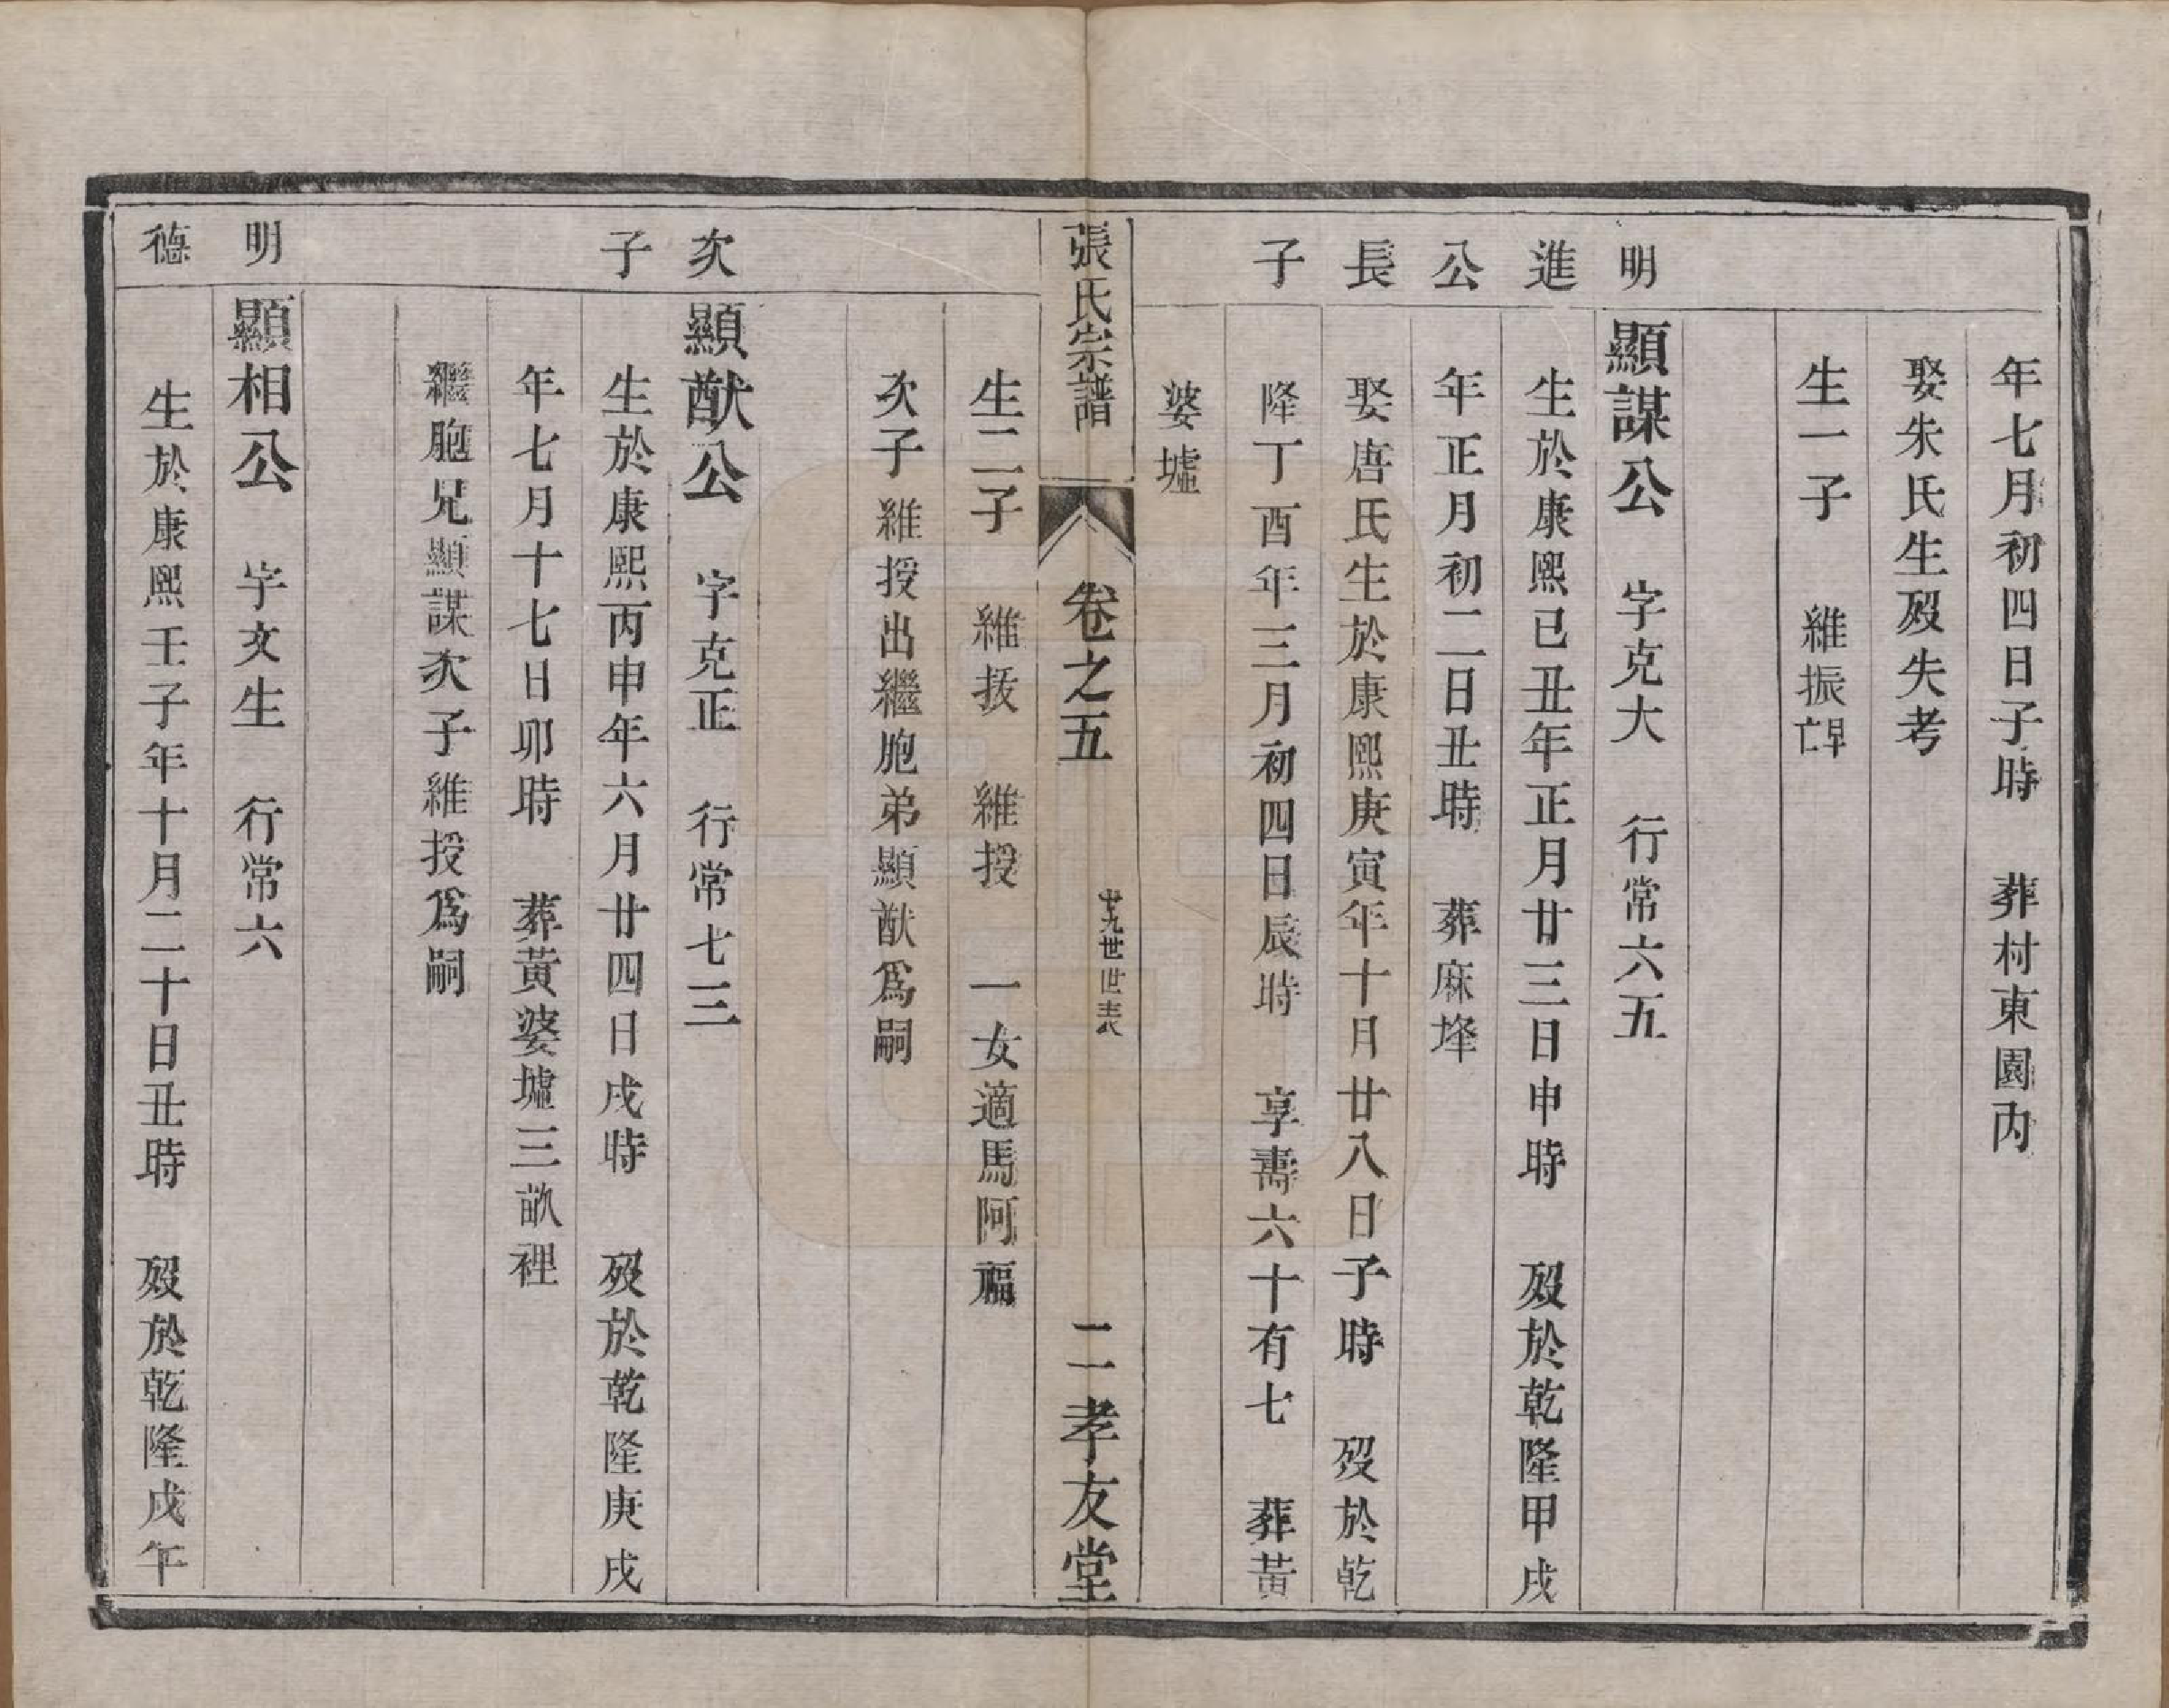 年七月初四日子時　葬村東園內
娶朱氏生殁失考
生一子　維振早亡
明　顯謀公　字克大　行常六五
進　生於康熙己丑年正月廿三日申時　殁於乾隆甲戌
公　年正月初二日丑時　葬麻埄
長　娶唐氏生於康熙庚寅年十月廿八日子時　殁於乾
子　隆丁酉年三月初四日辰時　享壽六十有七　葬黃
婆墟
張氏宗譜　卷之五　廿九世世表　二　孝友堂
生二子　維拔　維授　一女適馬阿福
次子維授出繼胞弟顯猷為嗣
次　顯猷公　字克正　行常七三
子　生於康熙丙申年六月廿四日戌時　殁於乾隆庚戌
年七月十七日卯時　葬黃婆墟三畝裡
繼胞兄顯謀次子維授爲嗣
明　顯相公　字文生　行常六
德　生於康熙壬子年十月二十日丑時　殁於乾隆戊午